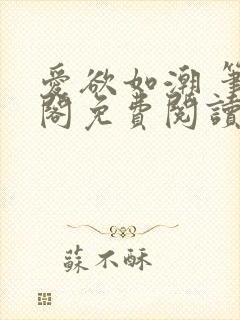 愛欲如潮 筆
閣免費閱讀
蘇不酥